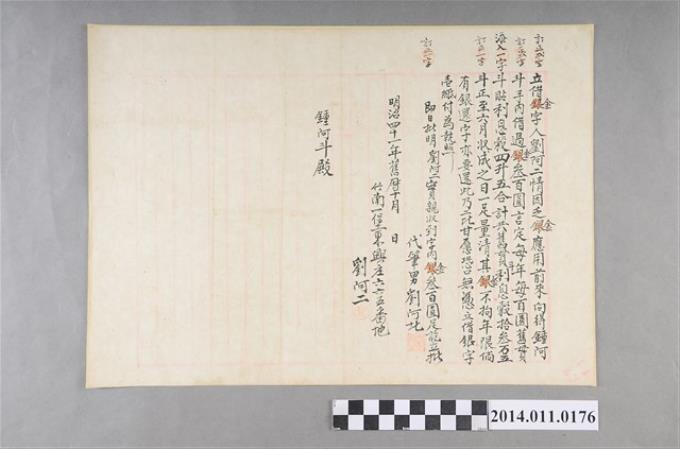 訂正貳字
訂正貳字
添入一字
訂正一字
訂正一字
立借銀字人劉阿二情因乏銀應用前來向得鍾阿
斗手內借過銀叁百圓言定每年每百圓舊貫
斗貼利息穀四斗五合計共舊貫利息穀拾叁石五
斗正至六月收成之日一足量清其銀不拘年限倘
有銀還字亦要還此乃二比甘愿恐口無憑立借銀字
壹紙付為執照
即日批明劉阿二實親收到字內銀叁百圓足訖立批
代筆男劉阿
明治四十一年舊曆十月 日
竹南一堡 東興庄六六五番地
劉阿二
鍾阿斗殿
金
金
金
金
2014.011.0176